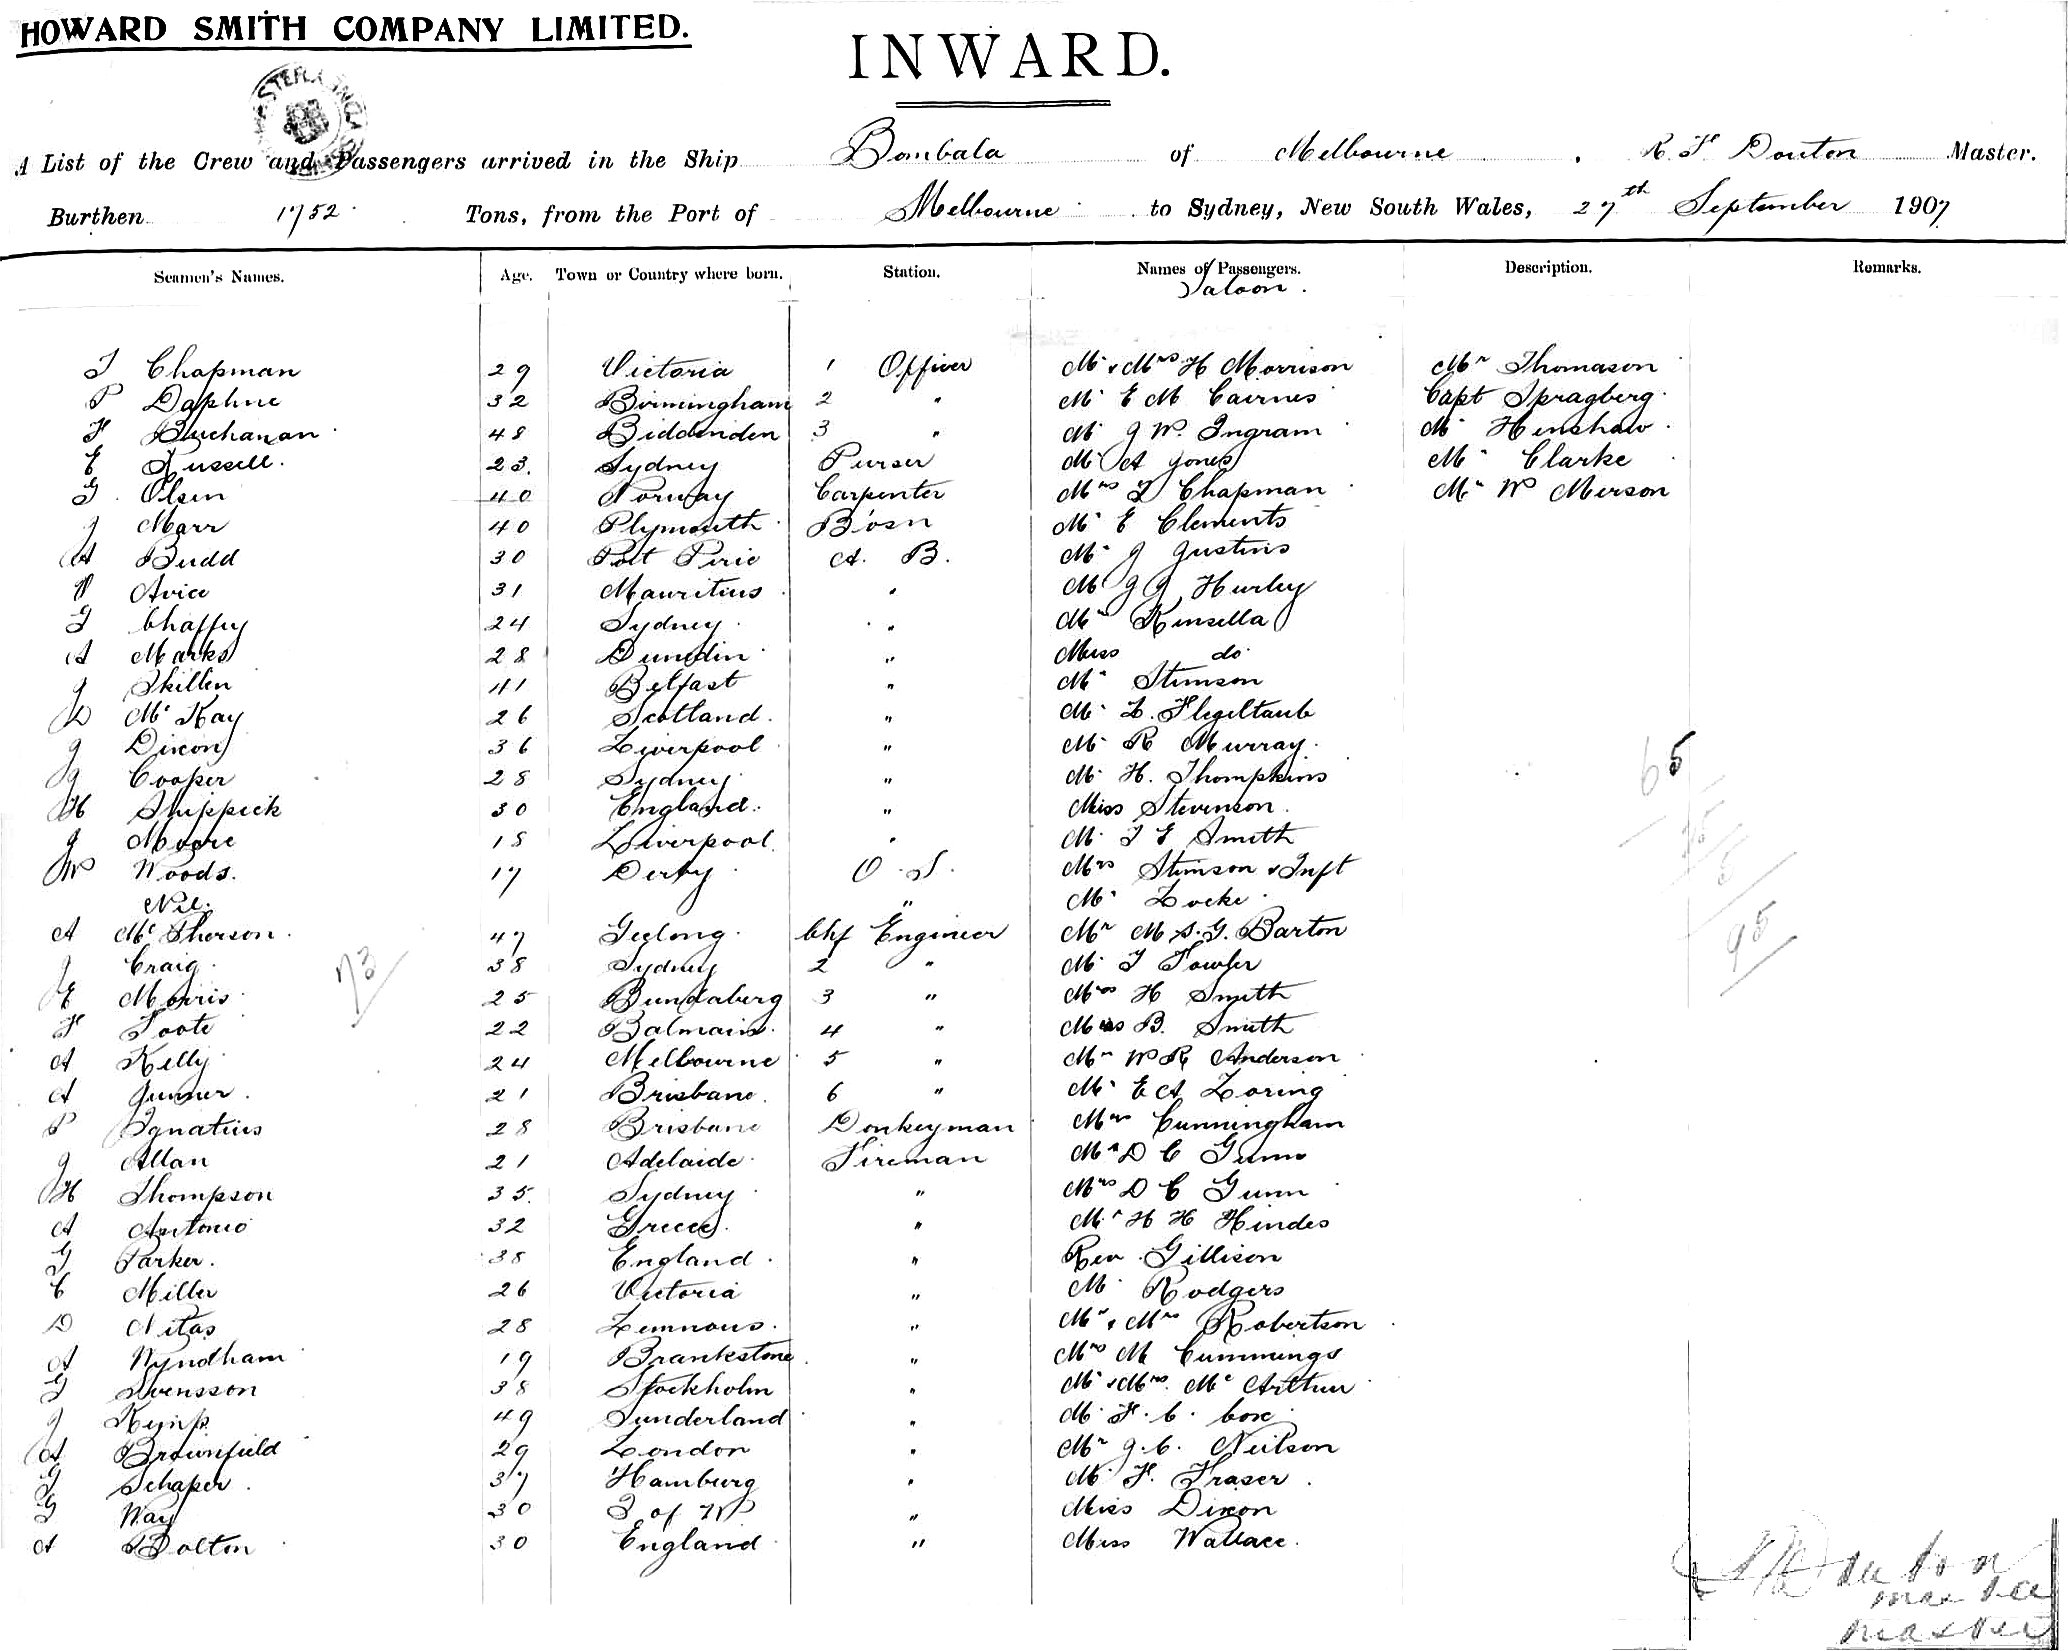 HOWARD SMITH COMPANY LIMITED.
INWARD.
A List of the Crew and Passengers arrived in the Ship Bombala of Melbourne, R. F. Douton Master.
Burthen 1752 Tons, from the Port of Melbourne to Sydney, New South Wales, 27th September 1907
Seamen's Names. Age. Town or Country where born. Station. Names of Passengers. Description. Remarks.
Saloon.
T Chapman 29 Victoria 1 Officer Mr & Mrs H Morrison Mr Thomason
P Daphne 32 Birmingham 2 " Mr E M Cairnes Capt Spragberg
F Buchanan 48 Biddenden 3 " Mr J W. Ingram Mr Henshaw
E Russell. 23. Sydney Purser Mr A Jones Mr Clarke
G. Olsen 40 Norway Carpenter Mrs T Chapman Mr W Merson
J Marr 40 Plymouth Bosn Mr E Clements
A Budd 30 Port Pirie A. B. Mr J Gustins
P Avice 31 Mauritius " Mr J J Hurley
T Chaffey 24 Sydney " Mr Kinsella
A Marks 28 Dunedin " Miss do
J Skillen 41 Belfast " Mr Stimson
D McKay 26 Scotland. " Mr L. Flegeltaub
J Dixon 36 Liverpool " Mr R Murray
J Cooper 28 Sydney " Mr H. Thompkins
H Shippick 30 England. " Miss Stevenson.
J Moore 18 Liverpool. " Mr T E Smith
W Woods. 17 Derby O. S. Mrs Stimson & Inft
Nil. " Mr Locke
A McPherson. 47 Geelong. Chf Engineer Mr M. S. G. Barton
J Craig 38 Sydney 2 " Mr T Fowler
E Morris 25 Bundaberg 3 " Mrs H Smith
F Foote 22 Balmain. 4 " Miss B. Smith
A Kelly 24 Melbourne 5 " Mr W R Anderson
A Gunner. 21 Brisbane. 6 " Mr E A Loring
P Ignatius 28 Brisbane Donkeyman Mrs Cunningham
J Allan 21 Adelaide Fireman Mr D C Gunn
H Thompson 35. Sydney " Mrs D C Gunn
A Antonio 32 Greece. " Mr H H Hindes
G Parker. 38 England. " Rev. Gillison
C Miller 26 Victoria " Mr Rodgers
D Nitas 28 Lemnous. " Mr & Mrs Robertson
A Wyndham 19 Brankstone " Mrs M Cummings
G Svensson 38 Stockholm " Mr & Mrs. McArthur
J Kemp 49 Sunderland " Mr F. C. Cox
A Brownfield 29 London " Mr J. C. Neilson
G Schaper. 37 Hamburg " Mr F. Fraser.
G Way 30 I of W " Miss Dixon
A Bolton 30 England " Miss Wallace.
65
95
73
Douton
master